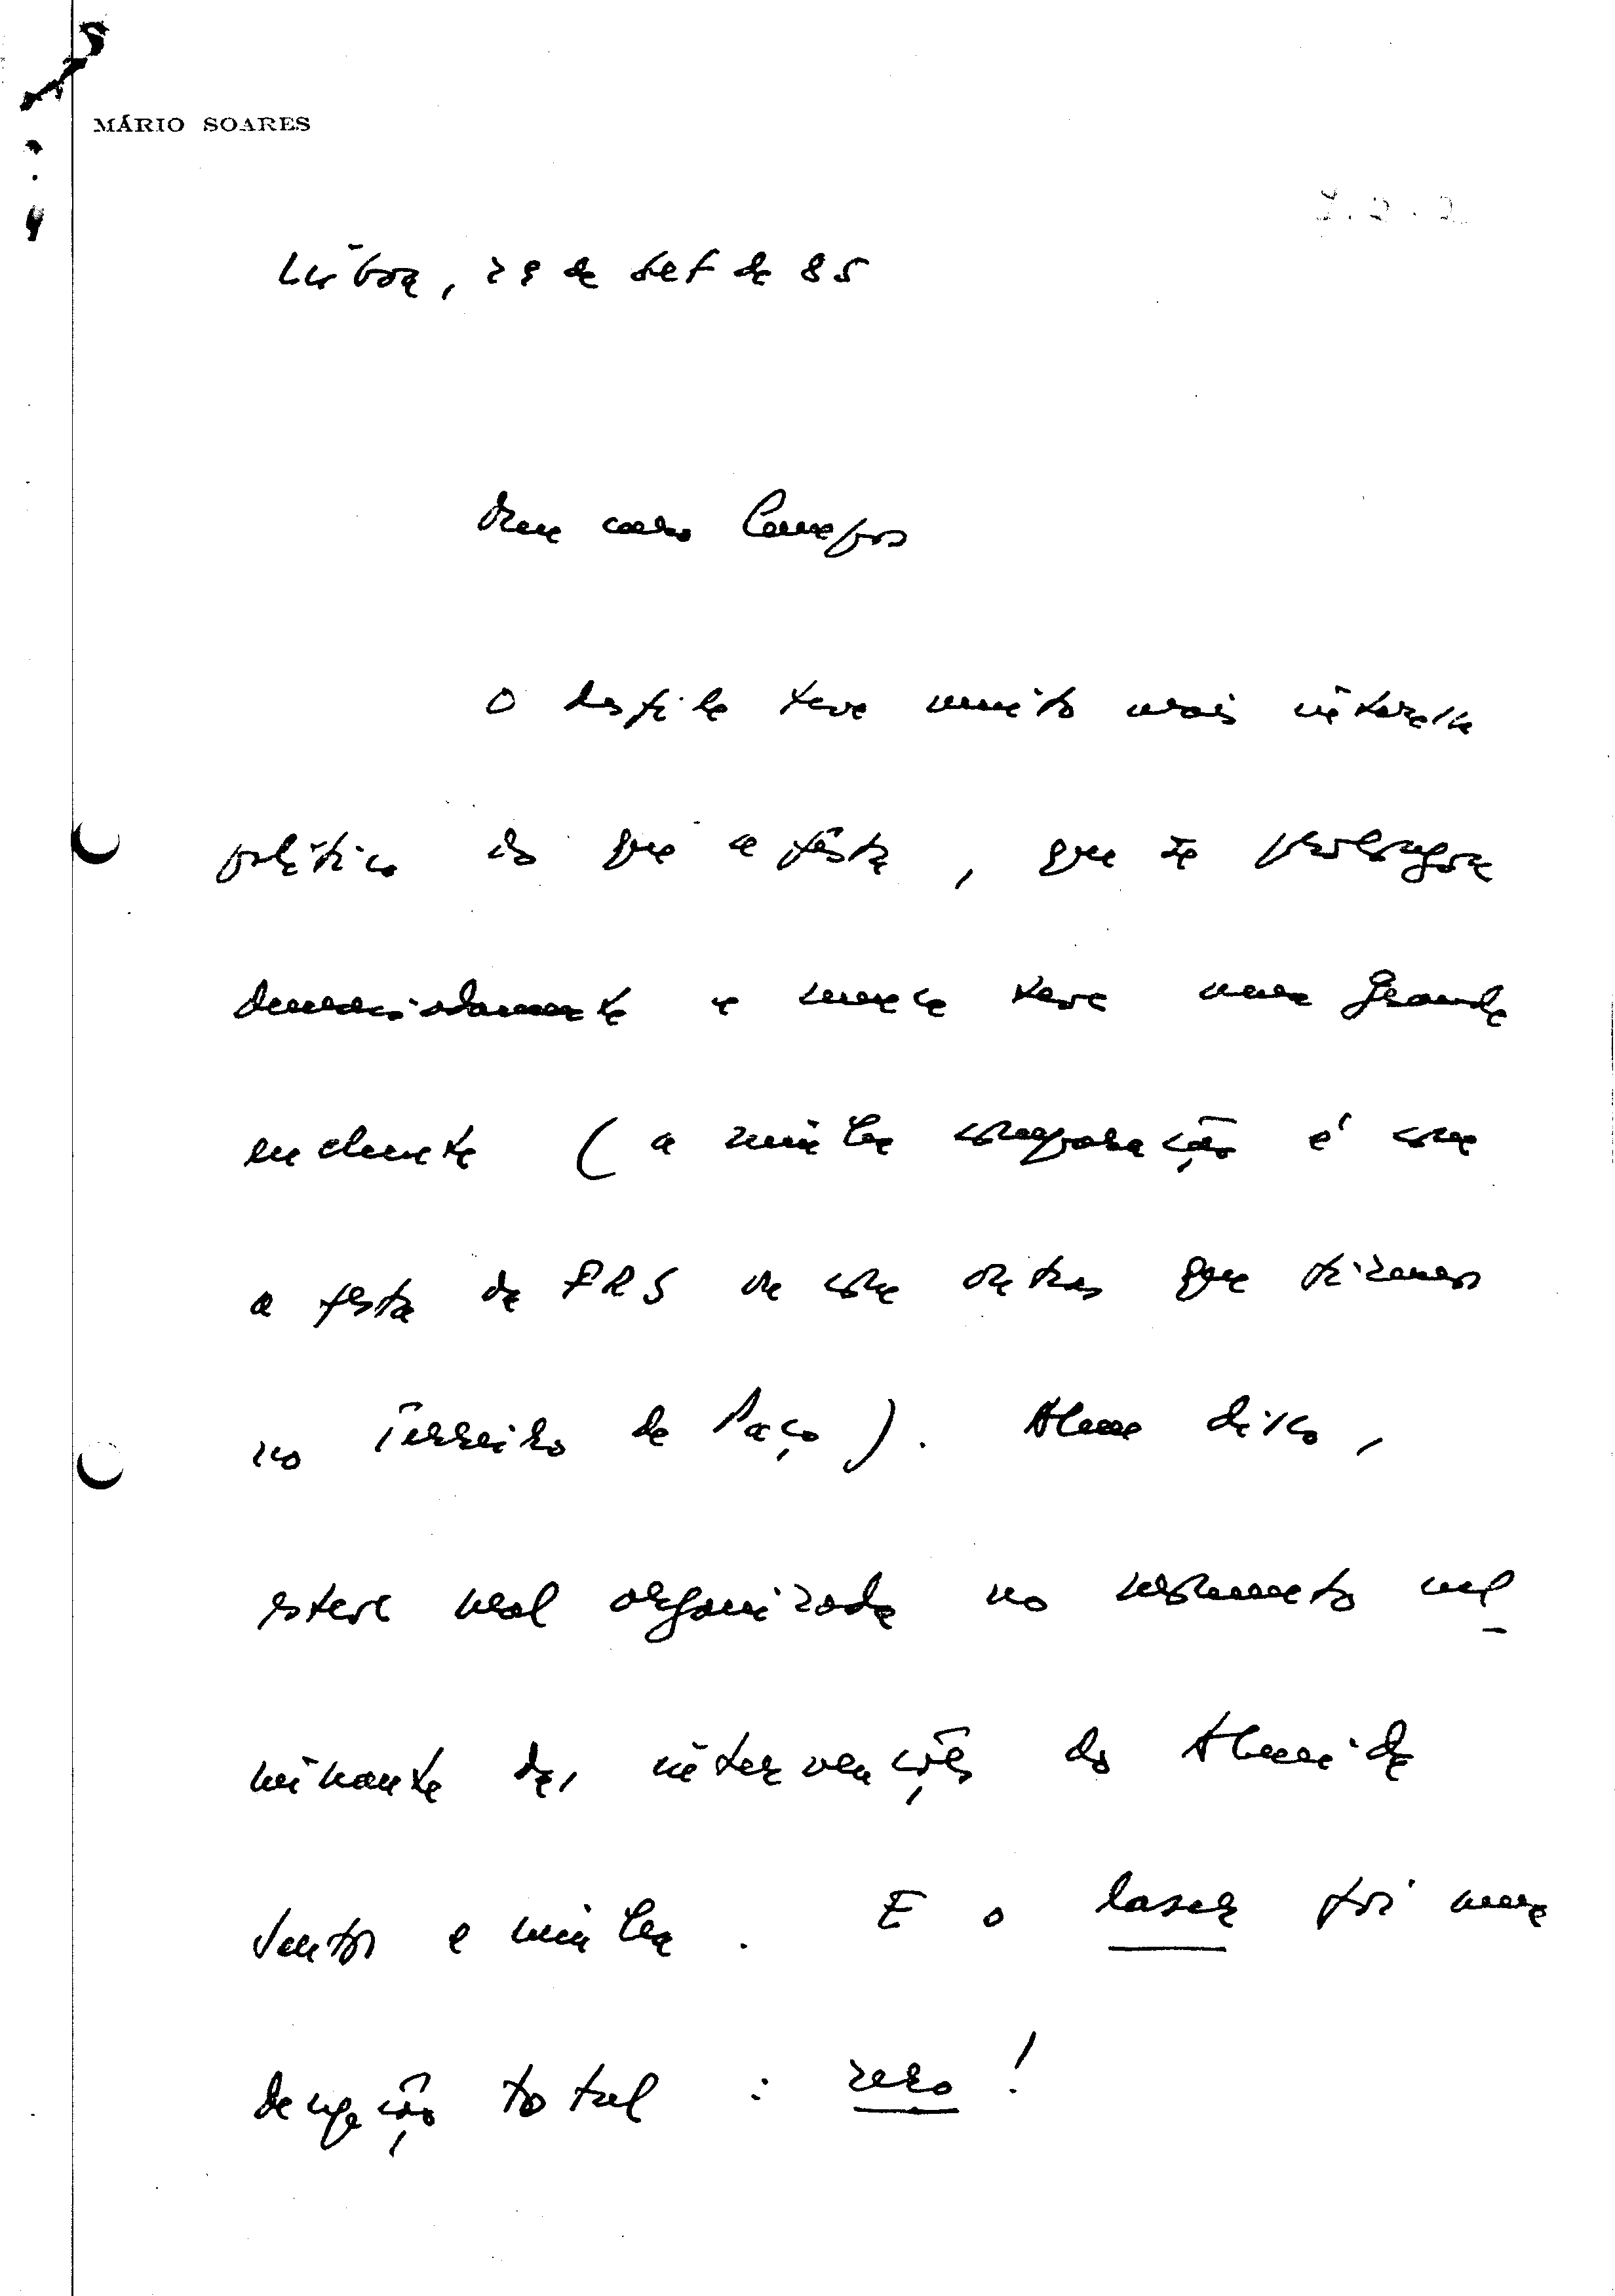 MÁRIO SOARES
Lisboa, 29 de Set de 85
Meu caro Campos
O desfile teve muito mais interesse
político do que a festa, que se prolongou
demasiadamente e nunca teve uma grande
enchente (a minha comparação é com
a festa da FRS ou com outras que fizemos
no Terreiro do Paço). Além disso,
esteve mal organizada no momento cul
minante das intervenções do Almeida
Santos e minha. E o laser foi uma
decepção total : zero !